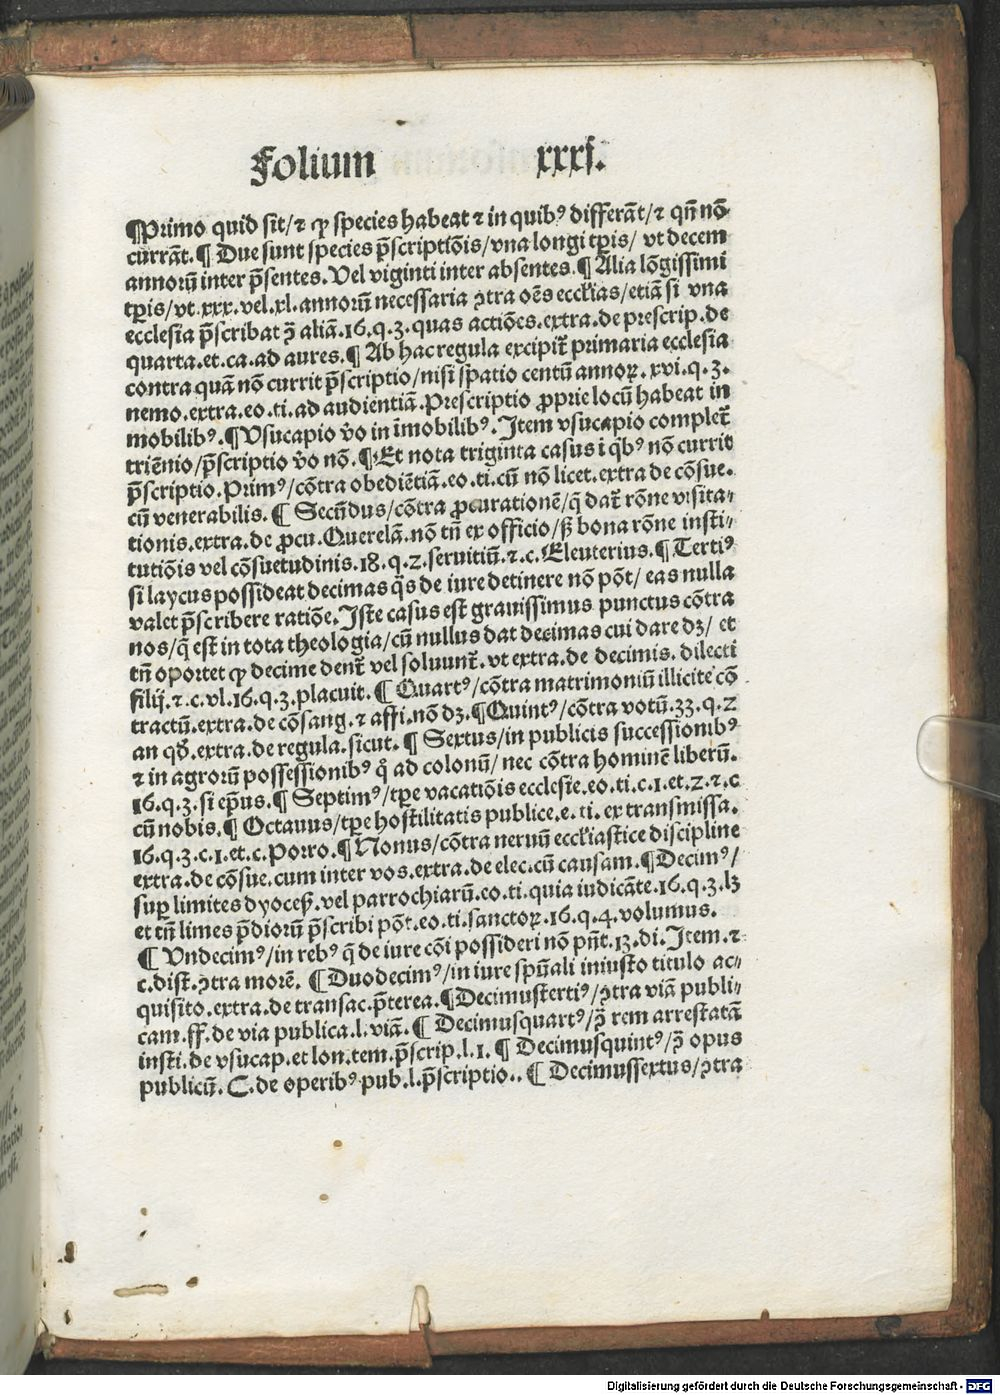 Folium xxxi.
¶Primo quid sit/⁊ ꝙ species habeat ⁊ in quibꝰ differāt/⁊ qn̄ nō
currāt.¶ Due sunt species p̄scriptiōis/vna longi tꝑis/ vt decem
annorū inter p̄sentes. Vel viginti inter absentes.¶ Alia lōgissimi
tꝑis/vt.xxx.vel.xl.annorū necessaria ꝯtra oēs ecclīas/etiā si vna
ecclesia p̄scribat ꝯ̄ aliā.16.q.3.quas actiōes.extra.de prescrip.de
quarta.et.ca.ad aures.¶ Ab hac regula excipit̄ primaria ecclesia
contra quā nō currit p̄scriptio/nisi spatio centū annoꝝ.xvi.q.3.
nemo.extra.eo.ti.ad audientiā.Prescriptio ꝓprie locū habeat in
mobilibꝰ.¶Vsucapio v̄o in īmobilibꝰ.Item vsucapio complet̄
triēnio/p̄scriptio v̄o nō.¶Et nota triginta casus ī qb̄ꝰ nō currit
p̄scriptio.Primꝰ/cōtra obediētiā.eo.ti.cū nō licet.extra de cōsue.
cū venerabilis.¶ Secūdus/cōtra ꝓcurationē/q̄ dat̄ rōne visita⸗
tionis.extra.de ꝓcu.Querelā.nō tn̄ ex officio/sꝫ bona rōne insti⸗
tutiōis vel cōsuetudinis.18.q.2.seruitiū.⁊.c.Eleuterius.¶ Tertiꝰ
si laycus possideat decimas q̄s de iure detinere nō pōt/ eas nulla
valet p̄scribere ratiōe.Iste casus est grauissimus punctus cōtra
nos/q̄ est in tota theologia/cū nullus dat decimas cui dare dꝫ/ et
tn̄ oportet ꝙ decime dent̄ vel soluunt̄.vt extra.de decimis. dilecti
filij.⁊.c.vl.16.q.3.placuit.¶ Quartꝰ/cōtra matrimoniū illicite cō
tractū.extra.de cōsang.⁊ affi.nō dꝫ.¶Quintꝰ/cōtra votū.33.q.2
an qđ.extra.de regula.sicut.¶ Sextus/in publicis successionibꝰ
⁊ in agrorū possessionibꝰ q̊ ad colonū/ nec cōtra hominē liberū.
16.q.3.si ep̄us.¶ Septimꝰ/tꝑe vacatiōis ecclesie.eo.ti.c.1.et.2.⁊.c
cū nobis.¶ Octauus/tꝑe hostilitatis publice.e.ti.ex transmissa.
16.q.3.c.1.et.c.Porro.¶Nonus/cōtra neruū ecclīastice discipline
extra.de cōsue.cum inter vos.extra.de elec.cū causam.¶Decimꝰ/
suꝑ limites dyoceß.vel parrochiarū.eo.ti.quia iudicāte.16.q.3.lꝫ
et tn̄ limes p̄diorū p̄scribi pōt.eo.ti.sanctoꝝ.16.q.4.volumus.
¶ Vndecimꝰ/in rebꝰ q̄ de iure cōi possideri nō pn̄t.13.di.Item.⁊
c.dist.ꝯtra morē. ¶Duodecimꝰ/in iure spūali iniusto titulo ac⸗
quisito.extra.de transac.p̄terea.¶Decimustertiꝰ/ꝯtra viā publi⸗
cam.ff.de via publica.l.viā.¶ Decimusquartꝰ/ꝯ̄ rem arrestatā
insti.de vsucap.et lon.tem.p̄scrip.l.1.¶ Decimusquintꝰ/ꝯ̄ opus
publicū.C.de operibꝰ pub.l.p̄scriptio..¶ Decimussextus/ꝯtra
Digitalisierung gefördert durch die Deutsche Forschungsgemeinschaft - DFG